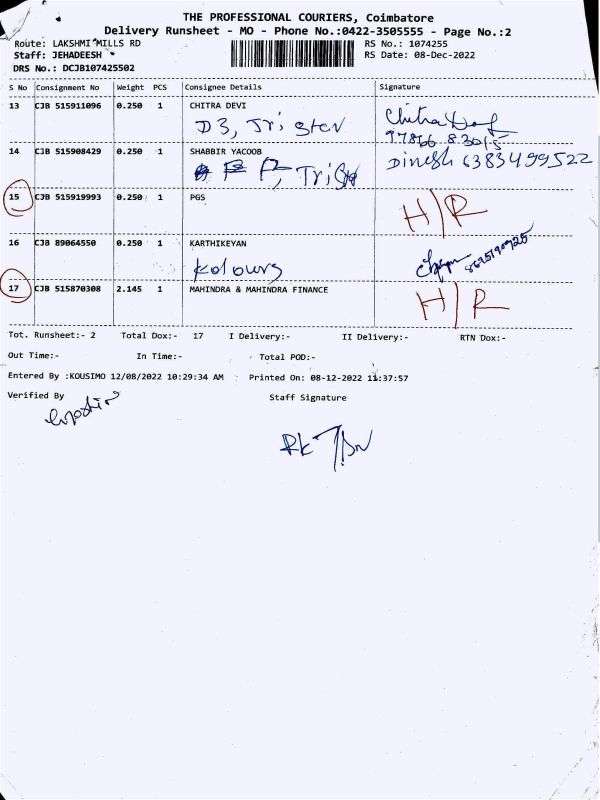 THE PROFESSIONAL COURIERS, Coimbatore
Delivery Runsheet - MO - Phone No.:0422-3505555 - Page No.:2
Route: LAKSHMI MILLS RD RS No.: 1074255
Staff: JEHADEESH RS Date: 08-Dec-2022
DRS No.: DCJB107425502
S No Consignment No Weight PCS Consignee Details Signature
13 CJB 515911096 0.250 1 CHITRA DEVI Chitra
D3, Tristen 97866 83015
14 CJB 515908429 0.250 1 SHABBIR YACOOB Dinesh 6383499522
15 CJB 515919993 0.250 1 PGS H/R
16 CJB 89064550 0.250 1 KARTHIKEYAN
Kolours
17 CJB 515870308 2.145 1 MAHINDRA & MAHINDRA FINANCE H/R
Tot. Runsheet:- 2 Total Dox:- 17 I Delivery:- II Delivery:- RTN Dox:-
Out Time:- In Time:- Total POD:-
Entered By :KOUSIMO 12/08/2022 10:29:34 AM Printed On: 08-12-2022 11:37:57
Verified By Staff Signature